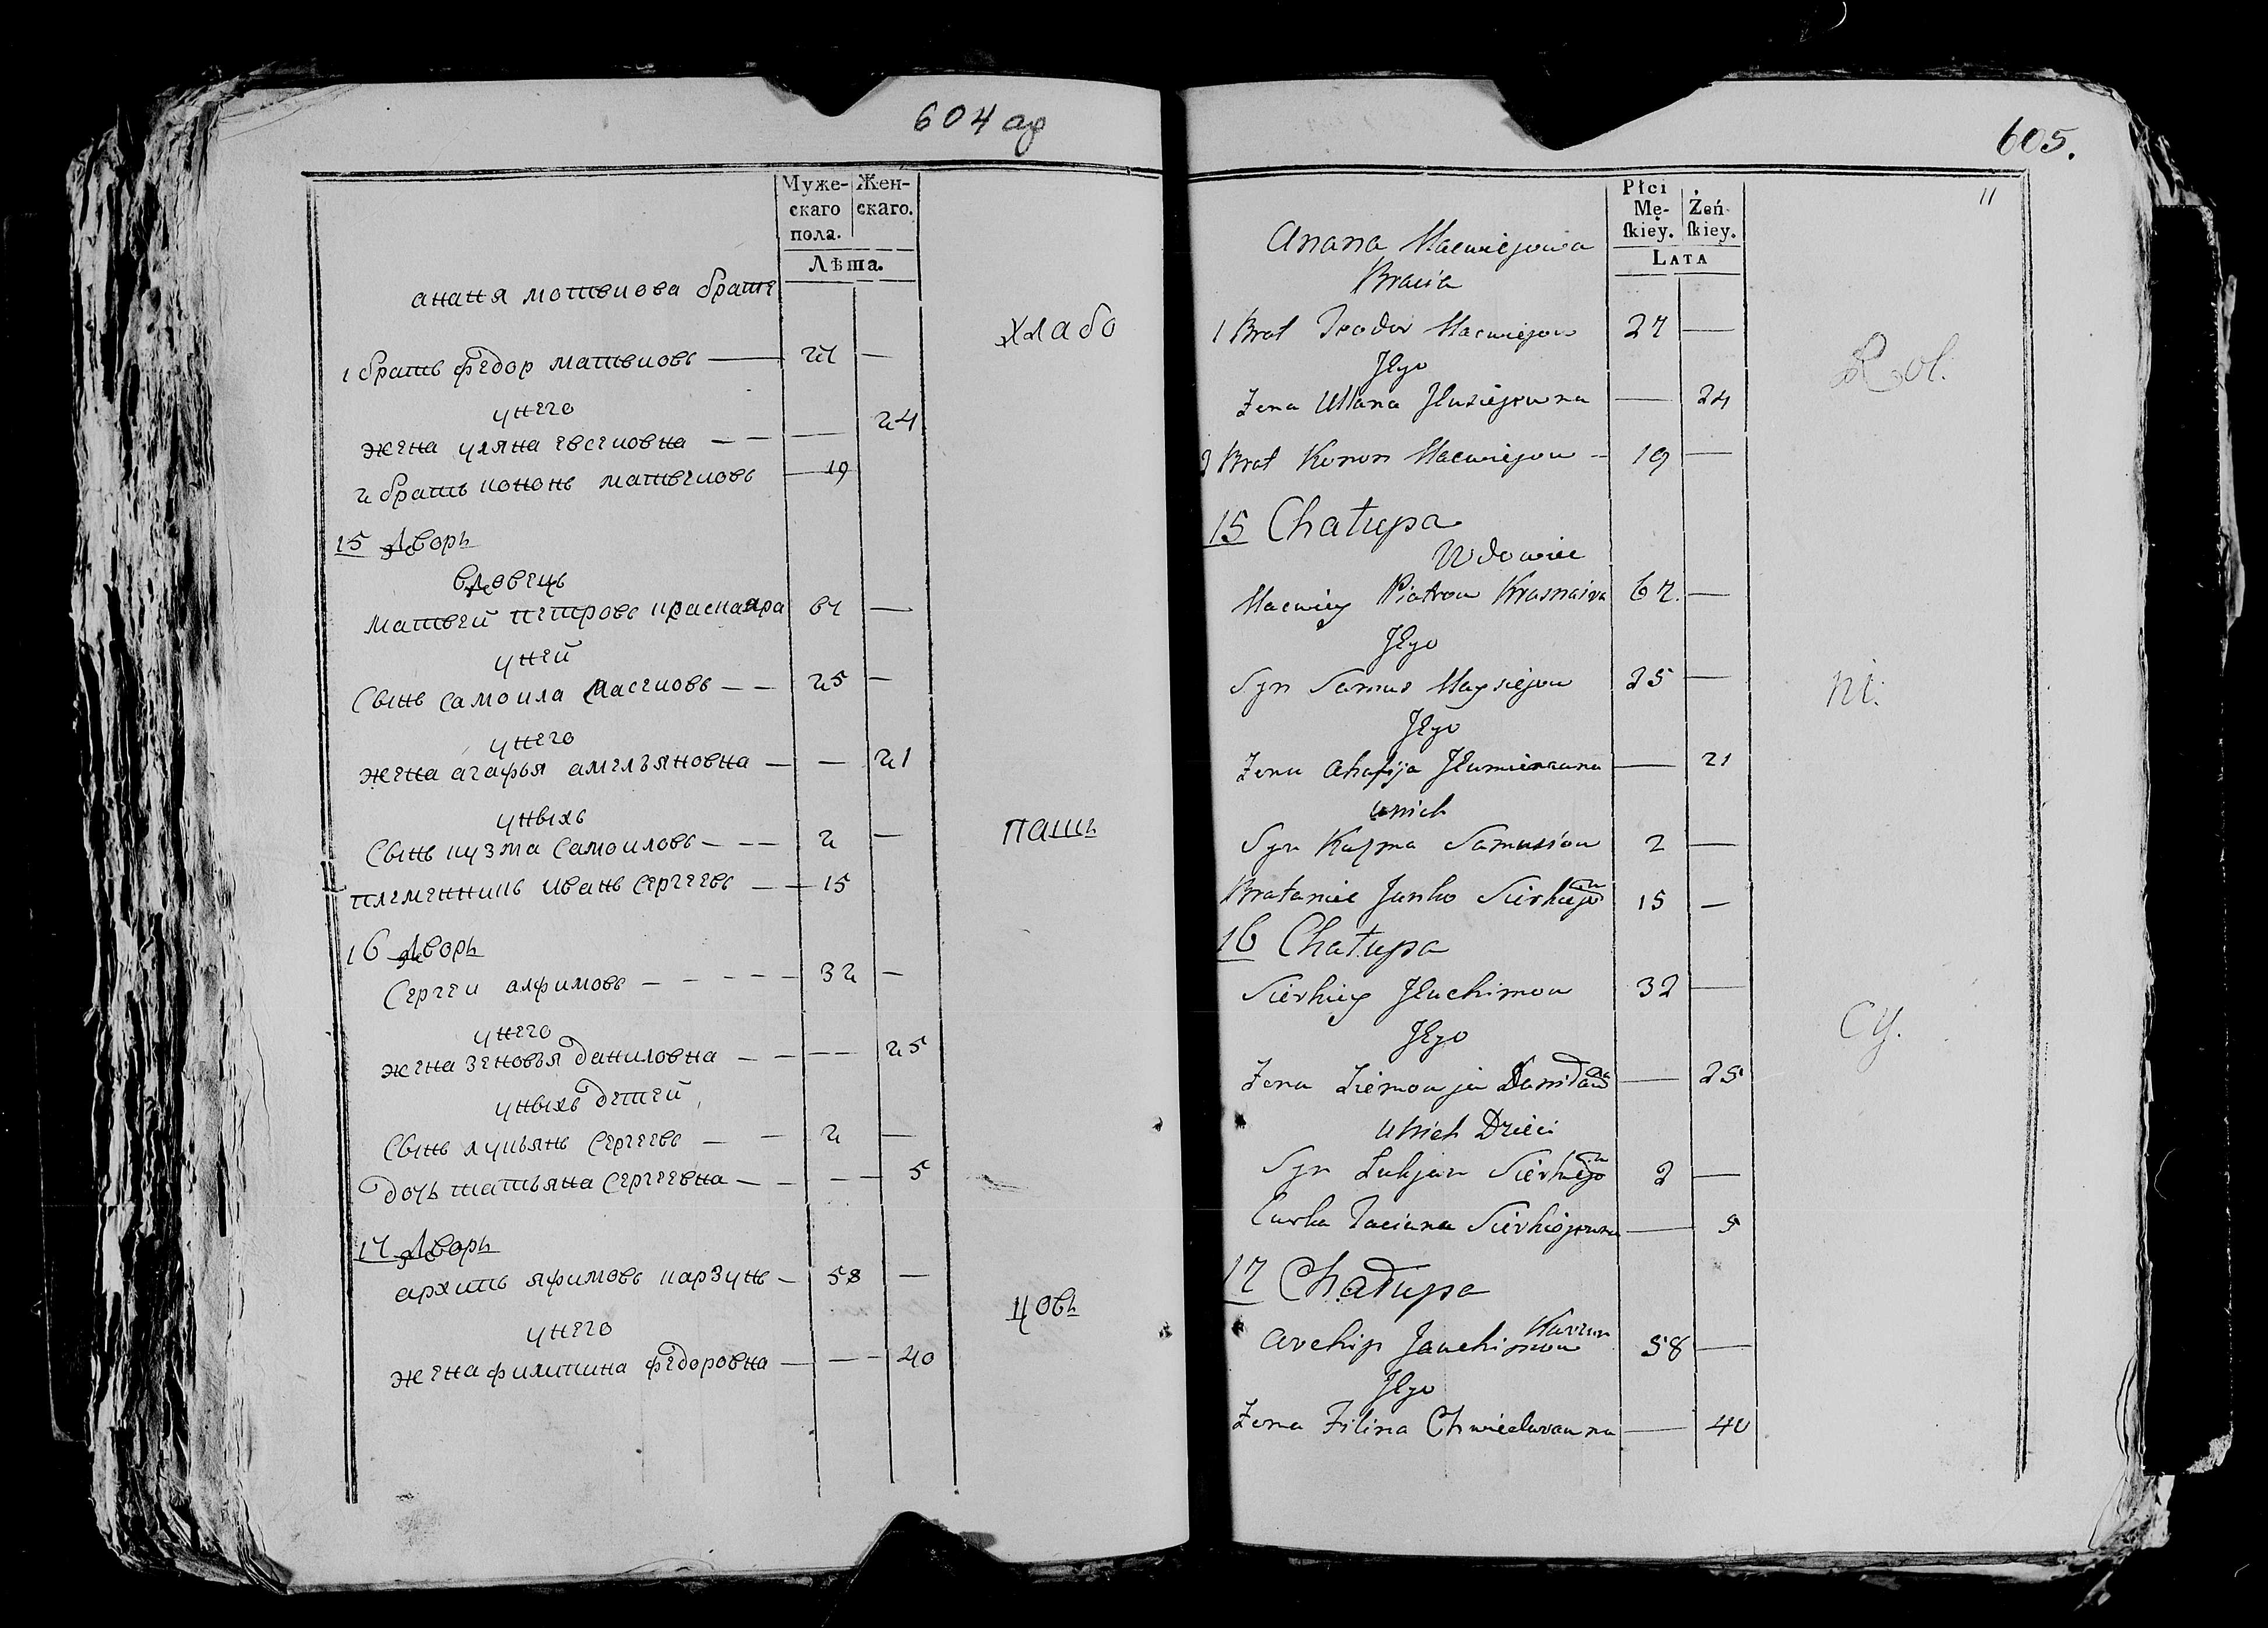 604 ар
Муже-
скаго
пола.
Жен-
скаго.
Лѣта.
ананя мотвиова брат
1 братъ федор матвиовъ — 27 —
унего
жена уляна евсеиовна — — — 24
2 братъ кононъ матвеиовъ — 19
15 Дворъ
вдовецъ
матвей петровъ красна 67 —
уней
сынъ самоила масеиовъ — — 25 —
унего
жена агафья амелъяновна — — 21
уныхъ
сынъ кузма самоиловъ — — — 2 —
племенникъ иванъ сергеевъ — — 15
16 Дворъ
сергеи алфимовъ — — — — 32 —
унего
жена зеновъя даниловна — — — — 25
уныхъ детей
сынъ лукьянъ сергеевъ — — 2 —
дочь татьяна сергеевна — — — — 5
17 Дворъ
архипъ яфимовъ карзунъ — 58 —
унего
жена филипина федоровна — — — 40
хлабо
паш
цовъ
605.
11
Płci
Mę-
skiey.
Żeń-
skiey.
LATA
Anana Macwiejowa
Bracia
1 Brat Teodor Macwiejow 27 —
Jego
Zena Ullana — 24
2 Brat Konon Macwiejow - 19 —
15 Chałupa
Wdowiec
Macwiey Piotrow 67. —
Jego
Syn Samus 25 —
Jego
Zena Ahafija — 21
Unich
Syn Kuzma Samusiow 2 —
Bratanic Janko Sierhiejow 15 —
16 Chałupa
Sierhiey Jłuchimow 32 —
Jego
Zena — 25
Unich Dzieci
Syn Łukjan Sierhiejow 2 —
Curka Taciana Sierhiejowna — 5
17 Chałupa
Archip Jauchimow Karzun 58 —
Jego
Zena Filina Chwiedorauna — 40
Rol.
ni.
cy.